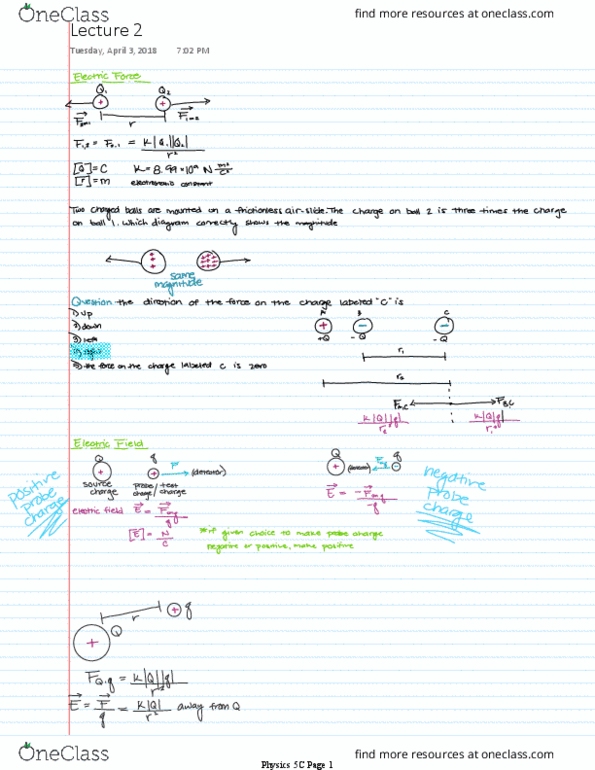 OneClass
find more resources at oneclass.com
Lecture 2
Tuesday, April 3, 2018 7:02 PM
Electric Force
Q₁ Q₂
+ +
r
F₁→₂
F₁,₂ = F₂,₁ = K|Q₁||Q₂| / r²
[Q] = C K = 8.99×10⁹ N m²/C²
[r] = m constant
Two charged balls are mounted on a frictionless air-slide. The charge on ball 2 is three times the charge
on ball 1. Which diagram correctly shows the magnitude
same
magnitude
Question the direction of the force on the charge labeled "C" is
1) up
2) down
3) left
5) the force on the charge labeled C is zero
A B C
+ − −
+Q −Q −Q
r₁
r₂
F A,C F B,C
K|Q||q| / r₂² K|Q||q| / r₁²
Electric Field
Q q F (detector)
source
charge
probe/test
charge/charge
positive
probe
charge
electric field E = F / q
[E] = N / C
Q q
+ −
E = −F / −q
negative
probe
charge
*if given choice to make probe charge
negative or positive, make positive
+ q
r
Q
+
F Q,q = K|Q||q| / r²
E = F / q = K|Q| / r² away from Q
OneClass
find more resources at oneclass.com
Physics 5C Page 1